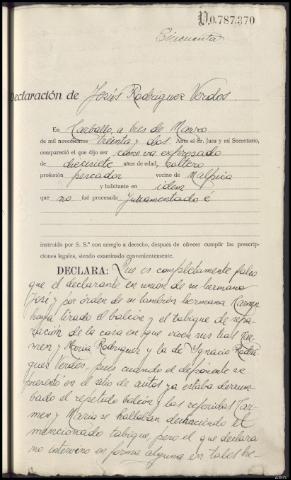 P.0.787.370
Cincuenta
Declaración de Jesús Rodriguez Verdes
En Carballo, a tres de Marzo
de mil novecientos treinta y dos. Ante el Sr. Juez y mi Secretario,
compareció el que dijo ser como va expresado
de diecisiete años de edad, soltero
profesión pescador vecino de Malpica
y habitante en idem
que no fué procesado Juramentado é
instruído por S. S.ª con arreglo a derecho, después de ofrecer cumplir las prescrip-
ciones legales, siendo examinado convenientemente.
DECLARA: Que es completamente falso
que el declarante en union de su hermano
José y por orden de su tambien hermana Carmen
haya tirado el balcón y el tabique de sepa-
ración de la casa en que viven sus tias Car-
men y Maria Rodriguez y la de Ignacio Rodri-
guez Verdes, pues cuando el deponente se
presentó en el sitio de autos ya estaba derrum-
bado el repetido balcón y las referidas Car-
men y Maria se hallaban deshaciendo el
mencionado tabique, pero el que declara
no intervino en forma alguna en tales he-